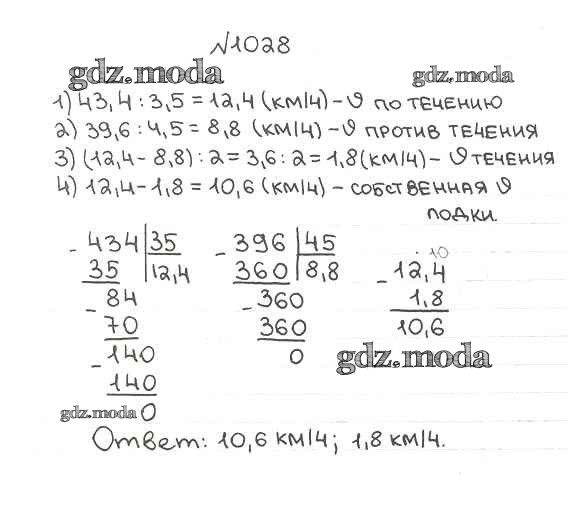 №1028
gdz.moda gdz.moda
1) 43,4 : 3,5 = 12,4 (км/ч) – υ по течению
2) 39,6 : 4,5 = 8,8 (км/ч) – υ против течения
3) (12,4 - 8,8) : 2 = 3,6 : 2 = 1,8 (км/ч) – υ течения
4) 12,4 – 1,8 = 10,6 (км/ч) – собственная υ
лодки.
- 434 35 - 396 45 10
35 12,4 360 8,8 - 12,4
- 84 - 360 1,8
70 360 10,6
- 140 0 gdz.moda
140
gdz.moda 0
Ответ: 10,6 км/ч; 1,8 км/ч.